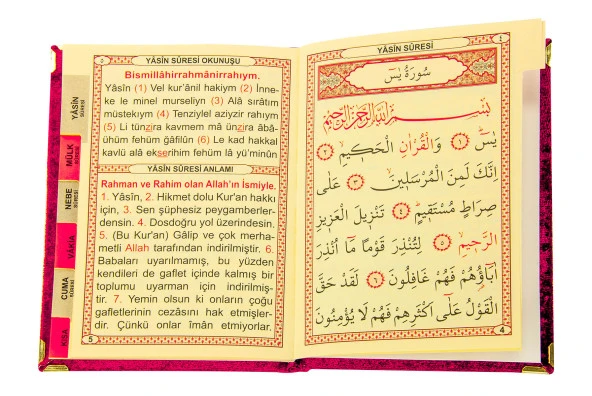 YÂSÎN SÛRESİ OKUNUŞU
Bismillâhirrahmânirrahıym.
Yâsîn (1) Vel kur'ânil hakiym (2) İnne-
ke le minel murseliyn (3) Alâ sırâtım
müstekıym (4) Tenziylel aziyzir rahıym
(5) Li tünzira kavmem mâ ünzira âbâ-
ühüm fehüm ğâfilûn (6) Le kad hakkal
kavlü alâ ekserihim fehüm lâ yü'minûn
YÂSÎN SÛRESİ ANLAMI
Rahman ve Rahim olan Allah'ın İsmiyle.
1. Yâsîn, 2. Hikmet dolu Kur'an hakkı
için, 3. Sen şüphesiz peygamberler-
densin. 4. Dosdoğru yol üzerindesin.
5. (Bu Kur'an) Gâlip ve çok merha-
metli Allah tarafından indirilmiştir. 6.
Babaları uyarılmamış, bu yüzden
kendileri de gaflet içinde kalmış bir
toplumu uyarman için indirilmiş-
tir. 7. Yemin olsun ki onların çoğu
gafletlerinin cezasını hak etmişler-
dir. Çünkü onlar îmân etmiyorlar.
5
YÂSÎN SÛRESİ
MÜLK
NEBE
SÛRESİ
VAKIA
CUMA
SÛRESİ
KISA
٤
YÂSİN SÛRESİ
سُورَةُ يٰسٓ
بِسْمِ اللّٰهِ الرَّحْمٰنِ الرَّحِيمِ
يٰسٓ ﴿١﴾ وَالْقُرْاٰنِ الْحَكِيمِ ﴿٢﴾
اِنَّكَ لَمِنَ الْمُرْسَلِينَ ﴿٣﴾ عَلٰى
صِرَاطٍ مُسْتَقِيمٍ ﴿٤﴾ تَنْزِيلَ الْعَزِيزِ
الرَّحِيمِ ﴿٥﴾ لِتُنْذِرَ قَوْمًا مَٓا اُنْذِرَ
اٰبَٓاؤُهُمْ فَهُمْ غَافِلُونَ ﴿٦﴾ لَقَدْ حَقَّ
الْقَوْلُ عَلٰٓى اَكْثَرِهِمْ فَهُمْ لَا يُؤْمِنُونَ
4